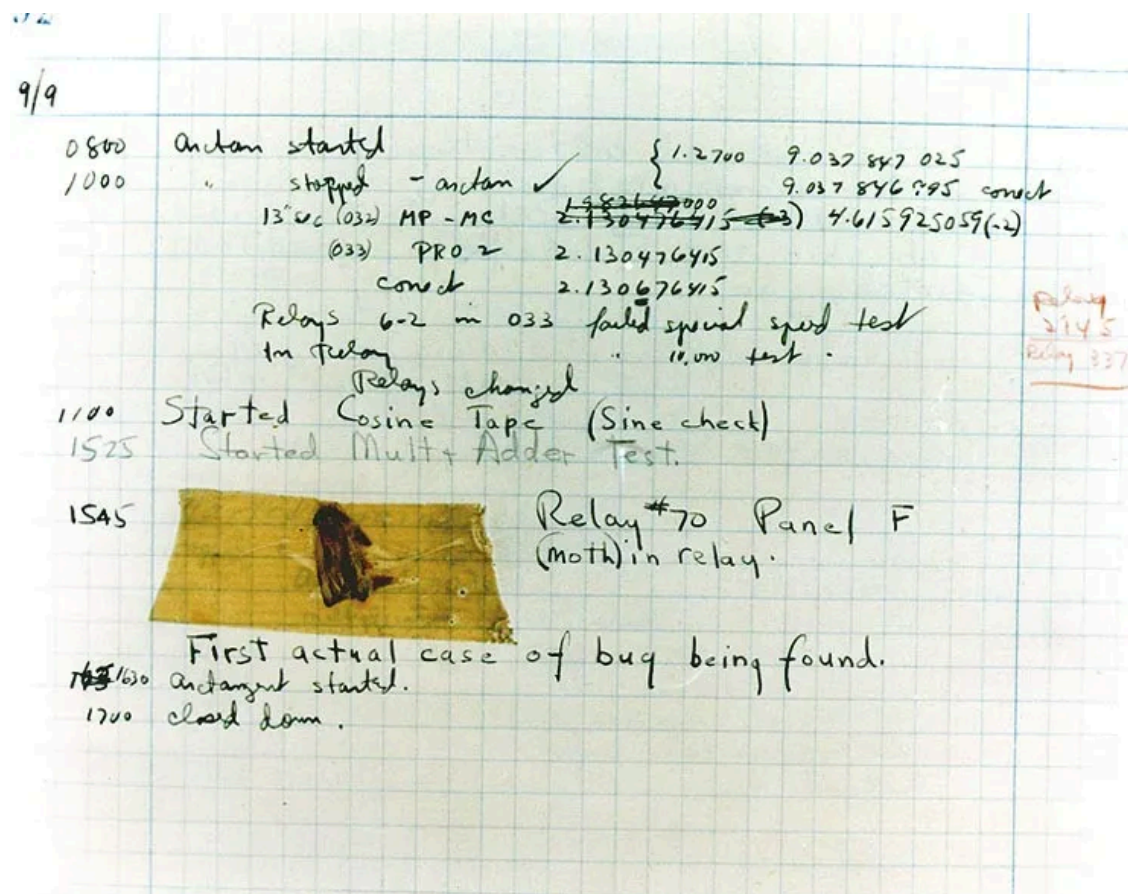 9/9
0800 arctan started { 1.2700 9.037 847 025
1000 " stopped - arctan ✓ 9.037 846 995 correct
13" uc (032) MP - MC 1.982647000 2.130476415 (-3) 4.615925059(-2)
(033) PRO 2 2.130476415
correct 2.130676415
Relays 6-2 in 033 failed special speed test
In Relay " 10,000 test .
Relays changed
1100 Started Cosine Tape (Sine check)
1525 Started Mult + Adder Test.
1545 Relay #70 Panel F
(moth) in relay.
First actual case of bug being found.
1630 arctangent started.
1700 closed down.
Relay
2145
Relay 337